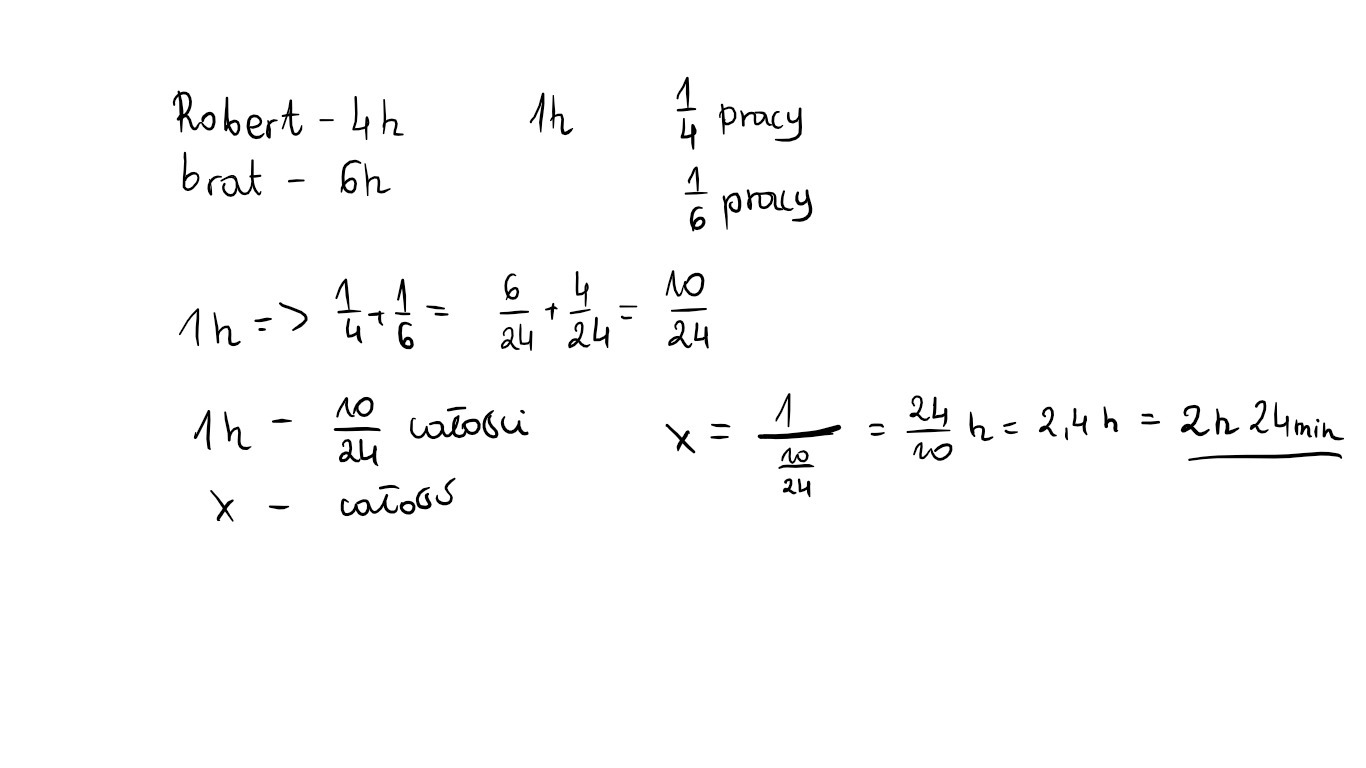 Robert - 4h 1h 1/4 pracy
brat - 6h 1/6 pracy
1h => 1/4 + 1/6 = 6/24 + 4/24 = 10/24
1h - 10/24 całości x = 1/(10/24) = 24/10 h = 2,4 h = 2h 24min
x - całość